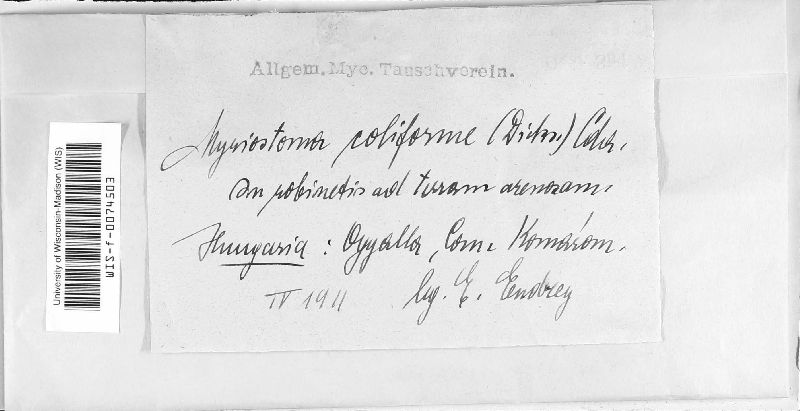 Allgem. Myc. Tauschverein.
Myriostoma coliforme (Dicks.) Corda.
In robinetis ad terram arenosam.
Hungaria : Ogyalla, Com. Komárom.
IV 1911 lg. E. Endrey
University of Wisconsin-Madison (WIS)
WIS-f-0074503